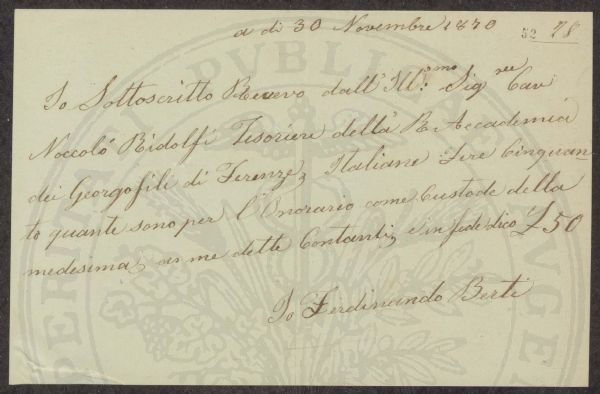 a di 30 Novembre 1870
52 78
Io Sottoscritto Ricevo dall' Ill:mo Sigre Cav
Noccolò Ridolfi Tesoriere della R. Accademia
dei Georgofili di Firenze, Italiane Lire Cinquan-
ta quante sono per l'Onorario come Custode della
medesima, a me dette Contanti, e in fede dico £50
Io Ferdinando Berti